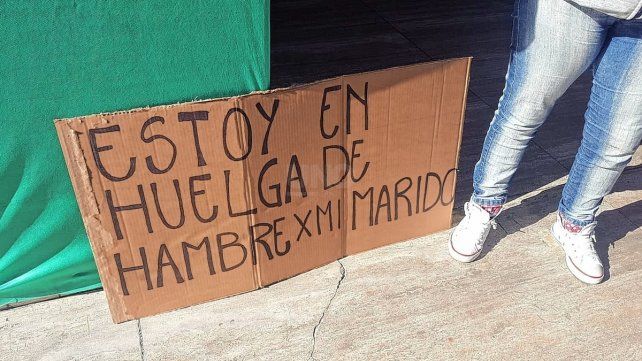 ESTOY EN
HUELGA DE
HAMBRE X MI MARIDO